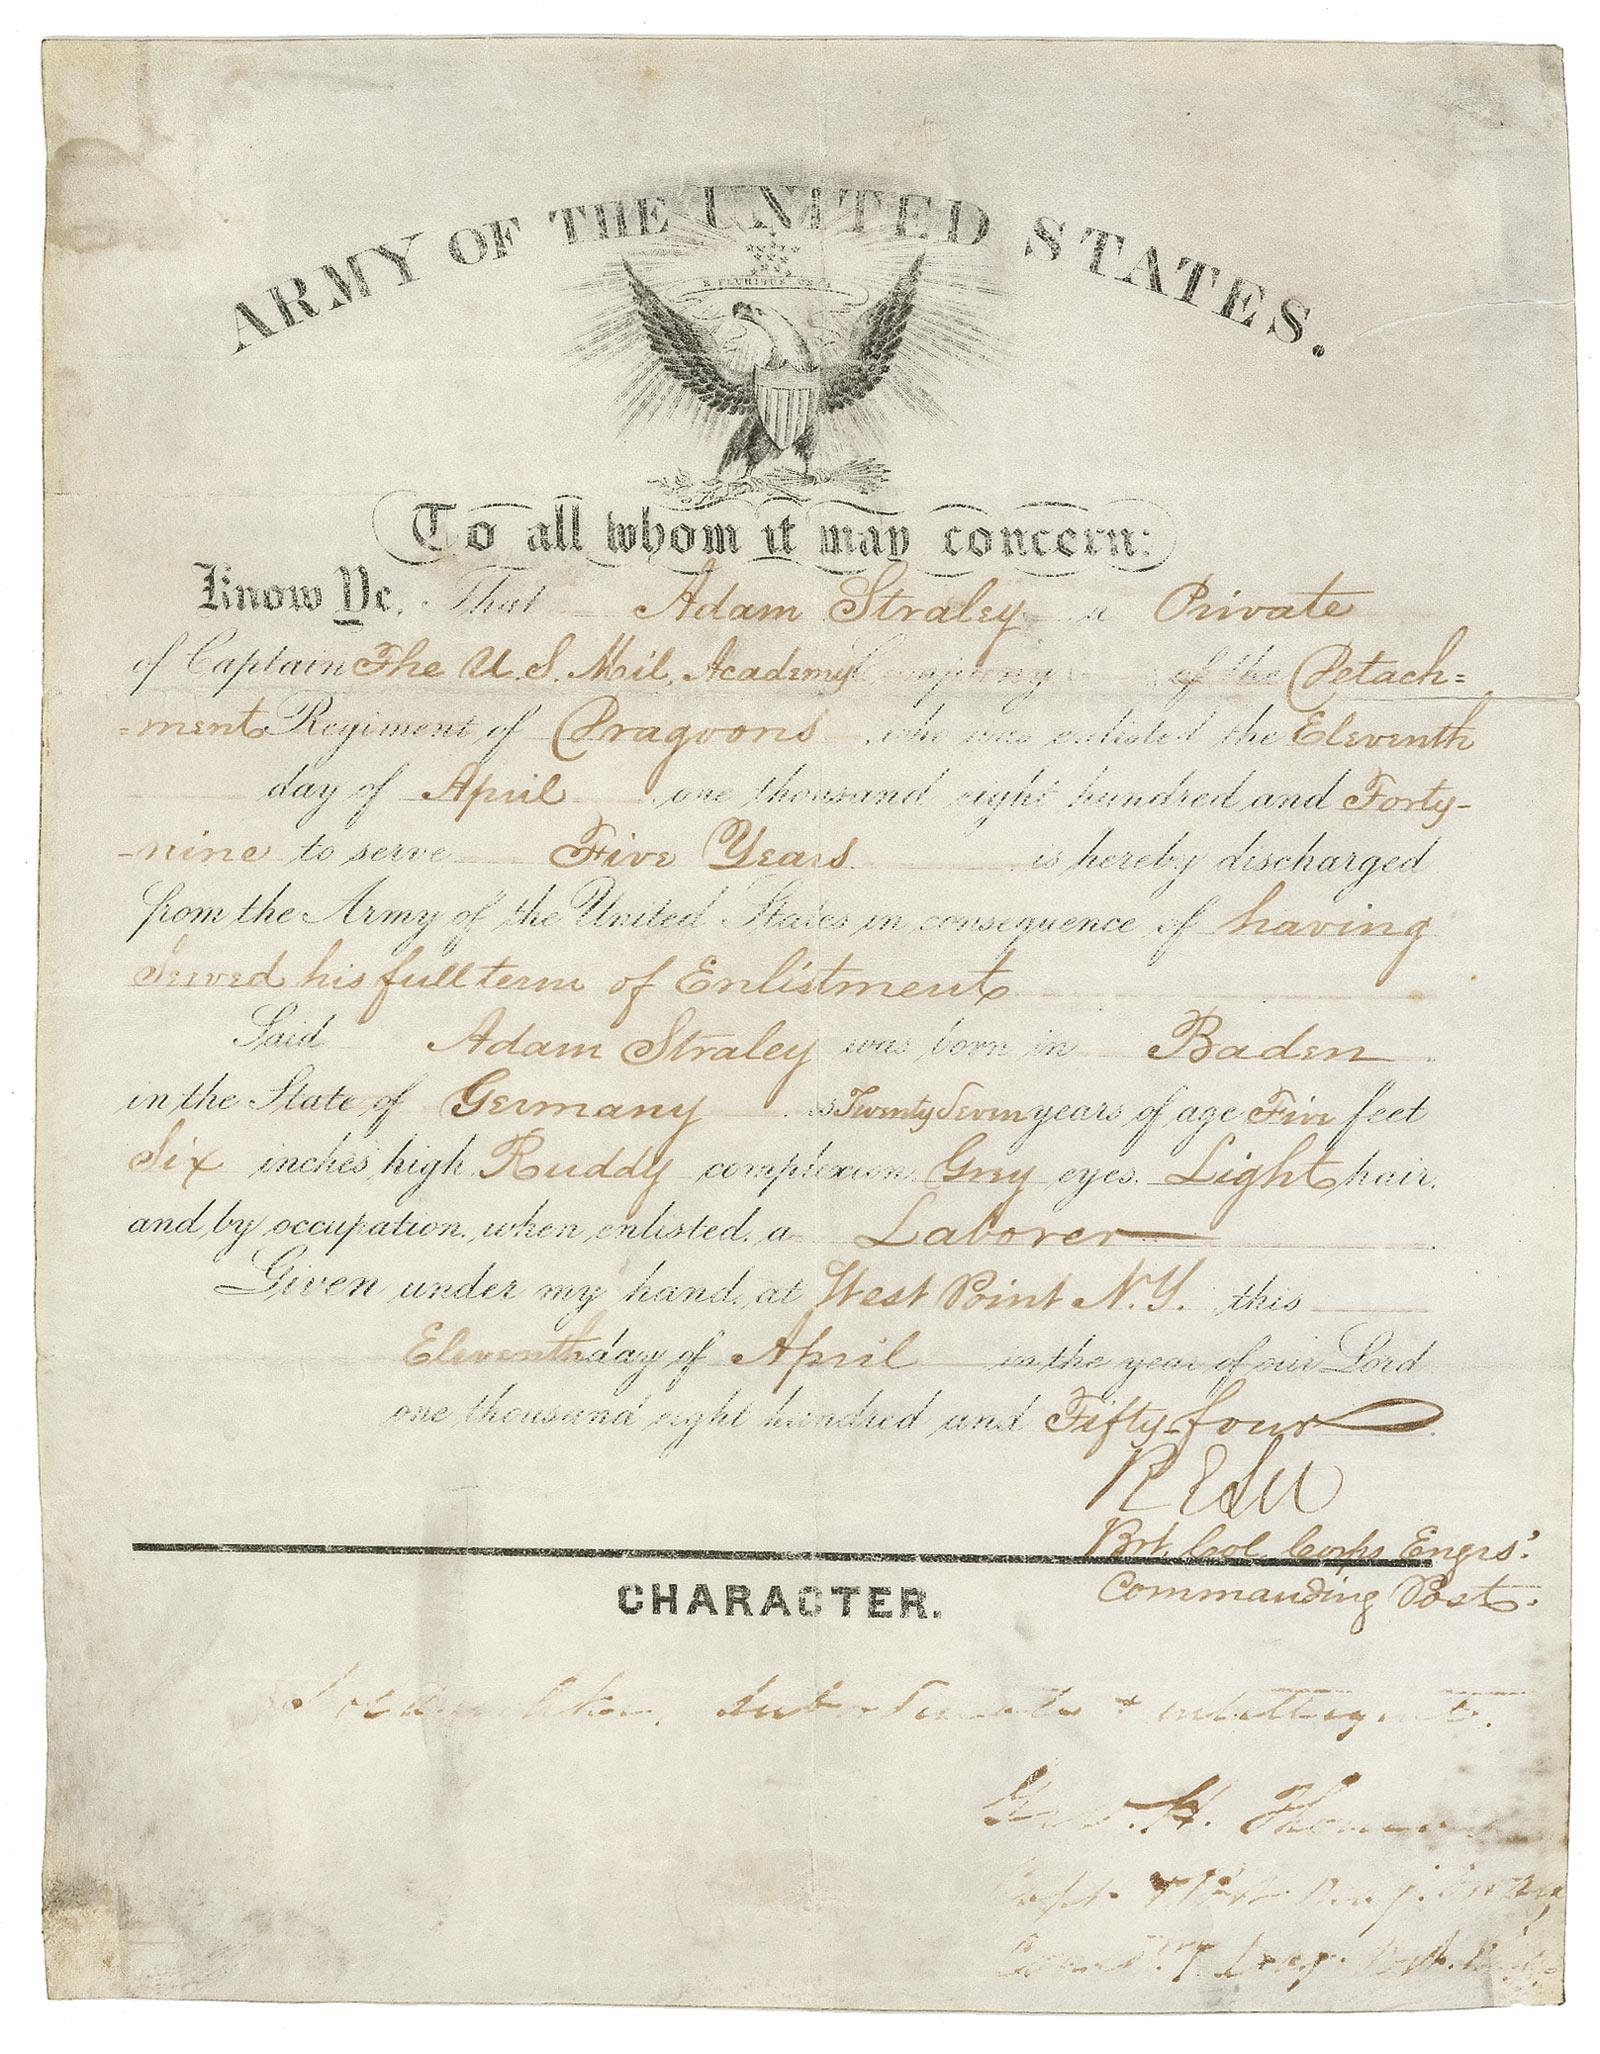 ARMY OF THE UNITED STATES.
E PLURIBUS UNUM
To all whom it may concern:
Know Ye, That Adam Straley a Private
of Captain The U.S. Mil. Academy Company of the Detach=
=ment Regiment of Dragoons who was enlisted the Eleventh
day of April one thousand eight hundred and Forty-
-nine to serve Five Years is hereby discharged
from the Army of the United States in consequence of having
Served his full term of Enlistment
Said Adam Straley was born in Baden
in the State of Germany is Twenty Seven years of age Five feet
Six inches high Ruddy complexion, Grey eyes, Light hair,
and by occupation, when enlisted, a Laborer
Given under my hand, at West Point N.Y. this
Eleventh day of April in the year of our Lord
one thousand eight hundred and Fifty-four.
R E Lee
Brt. Col. Corps Engrs.
Commanding Post.
CHARACTER.
subordinate + intelligent.
Geo. H. Thomas
Capt.